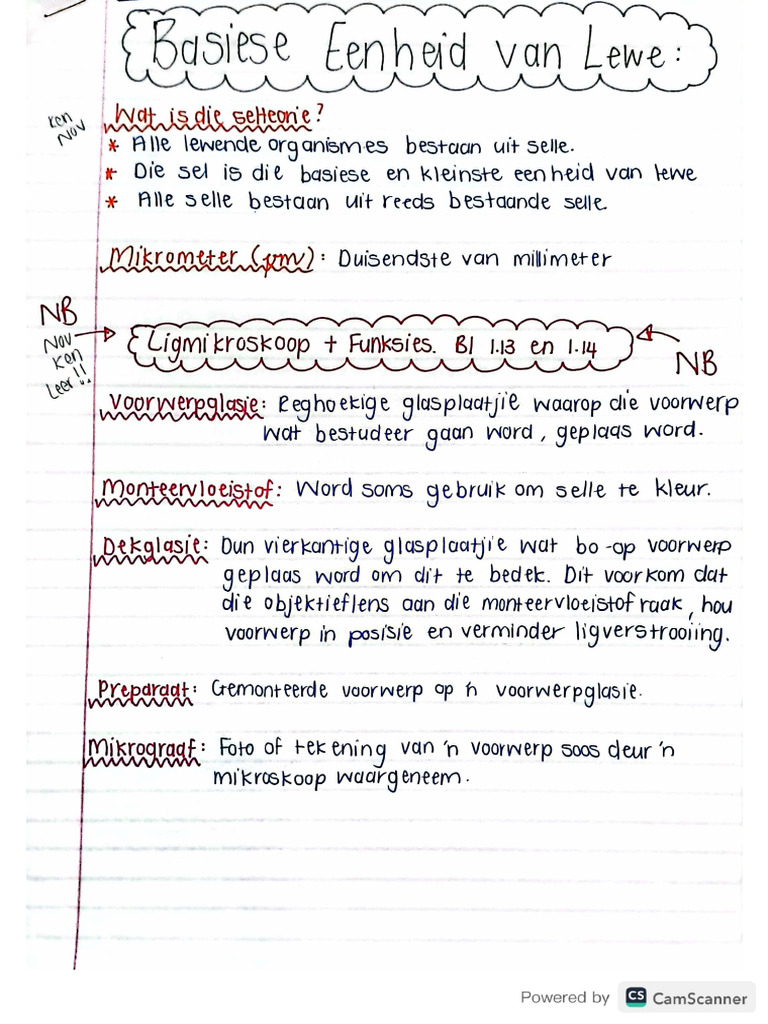 Basiese Eenheid van Lewe:
Ken
Nov
Wat is die selteorie?
* Alle lewende organismes bestaan uit selle.
* Die sel is die basiese en kleinste eenheid van lewe
* Alle selle bestaan uit reeds bestaande selle.
Mikrometer (µm): Duisendste van millimeter
NB
Nov
Ken
Leer!!
Ligmikroskoop + Funksies. Bl 1.13 en 1.14
NB
Voorwerpglasie: Reghoekige glasplaatjie waarop die voorwerp
wat bestudeer gaan word, geplaas word.
Monteervloeistof: Word soms gebruik om selle te kleur.
Dekglasie: Dun vierkantige glasplaatjie wat bo-op voorwerp
geplaas word om dit te bedek. Dit voorkom dat
die objektieflens aan die monteervloeistof raak, hou
voorwerp in posisie en verminder ligverstrooiing.
Preparaat: Gemonteerde voorwerp op 'n voorwerpglasie.
Mikrograaf: Foto of tekening van 'n voorwerp soos deur 'n
mikroskoop waargeneem.
Powered by CS CamScanner